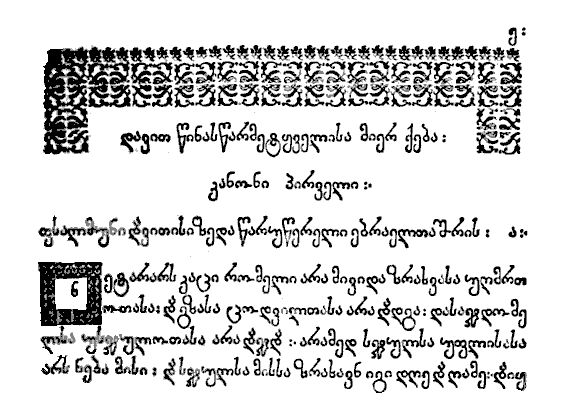 ე :
დავით წინასწარმეტყველისა მიერ ქება :
კანონი პირველი :·
ფსალმუნი დვითისი ზედა წარუწერელი ებრაელთა შრის : ა:·
ნეტარარს კაცი რომელი არა მივიდა ზრახვასა უღმრთ
ოთასა: დ გზასა ცოდვილთასა არა დდგა: დასაჯდომე
ლსა უსჯულოთასა არა დჯდ :· არამედ სჯულსა უფლისასა
არს ნება მისი : დ სჯულსა მისსა ზრახავნ იგი დღე დ ღამე: დ იყ